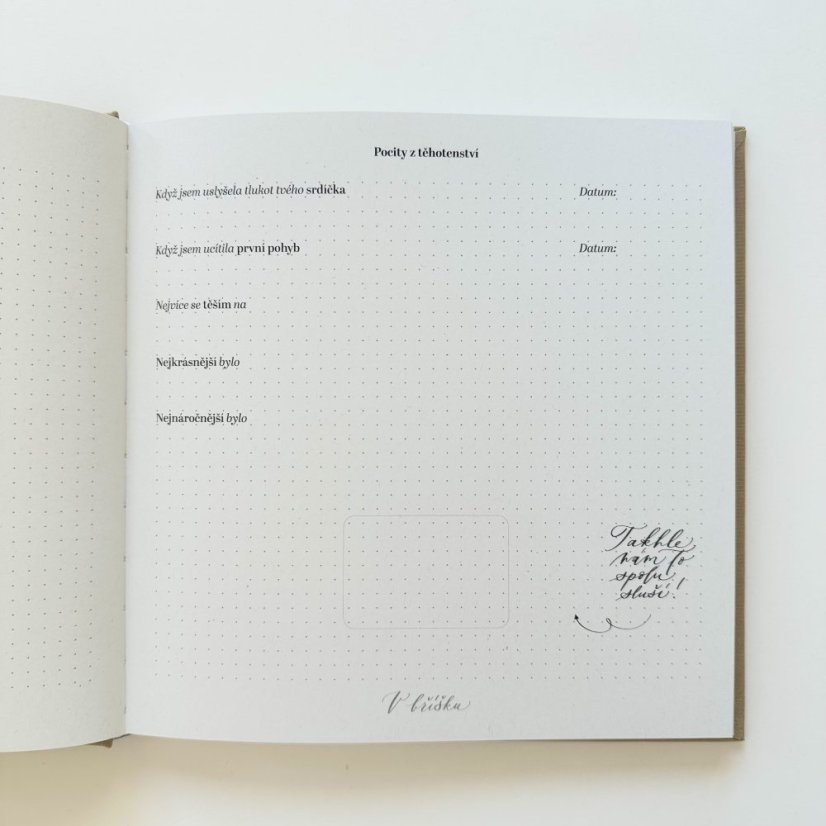 Pocity z těhotenství
Když jsem uslyšela tlukot tvého srdíčka Datum:
Když jsem ucítila první pohyb Datum:
Nejvíce se těším na
Nejkrásnější bylo
Nejnáročnější bylo
Takhle
nám to
spolu
sluší!
V bříšku